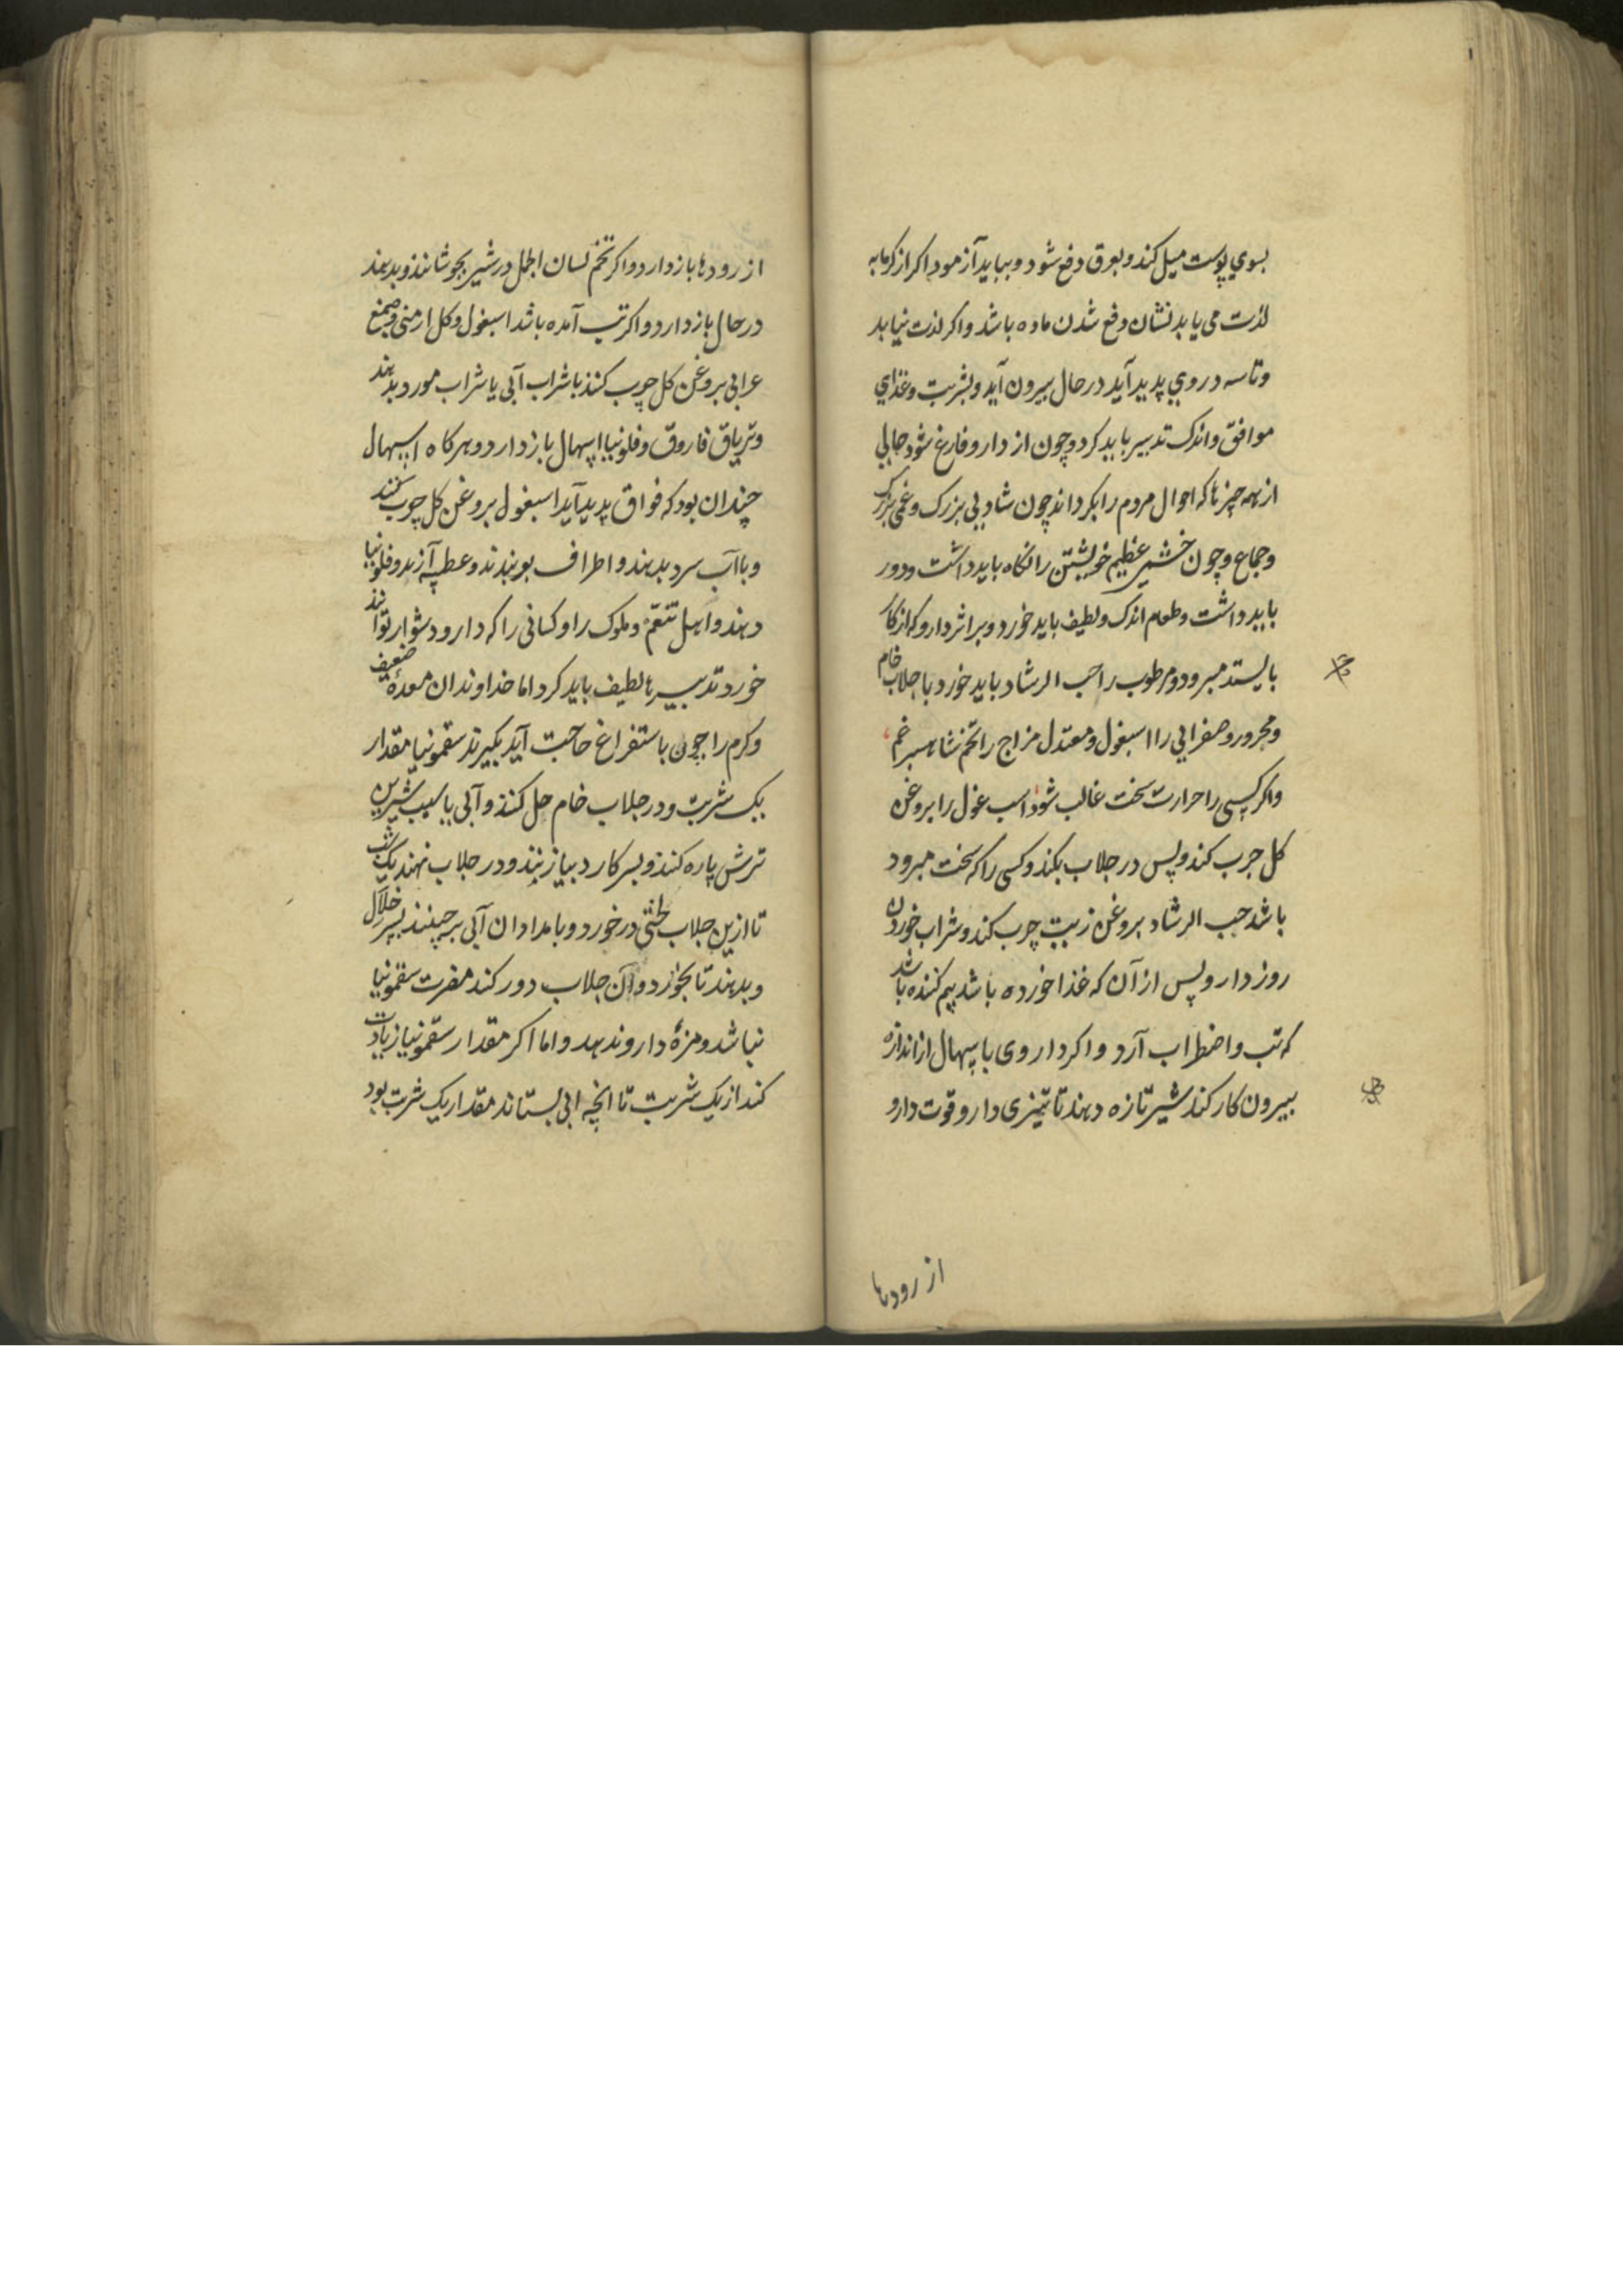 بسوي پوست ميل كند و بعرق دفع شود و ببايد آزمود اكر از كرمابه
لذت مى يابد نشان دفع شدن ماده باشد و اكر لذت نيابد
وتاسه در وي پديد آيد در حال بيرون آيد و بشربت و غذاي
موافق و اندك تدبير بايد كرد و چون از دارو فارغ شود حالي
از همه چيزها كه احوال مردم را بكرداند چون شاديي بزرك و غمي بزرك
و جماع و چون خشم عظيم خويشتن را نكاه بايد داشت و دور
بايد داشت و طعام اندك و لطيف بايد خورد و بر اثر دارو كه از كار
بايستد مبرود و مرطوب را حب الرشاد بايد خورد با جلاب خام
و محرور و صفرايي را اسبغول و معتدل مزاج را تخم شاهسبرغم
و اكر كسى را حرارت سخت غالب شود اسب غول را بروغن
كل جرب كند و پس در جلاب بكند و كسى را كه سخت مبرود
باشد حب الرشاد بروغن زيت چرب كند و شراب خوردن
روز دارو پس از آن كه غذا خورده باشد بيم كننده باشد
كه تب و اضطراب آرد و اكر داروى با سهال از اندازه
بيرون كار كند شير تازه دهند تا تيزى دارو و قوت دارو
از رودها
از رودها باز دارد و اكر تخم لسان الحمل در شير بجوشانند و بدهند
در حال باز دارد و اكر تب آمده باشد اسبغول و كل ارمنى و صمغ
عرابى بروغن كل چوب كنند با شراب آبى يا شراب مورد بدهند
و ترياق فاروق و فلونيا اسهال باز دارد و هركاه اسهال
چندان بود كه فواق پديد آيد اسبغول بروغن كل چوب كنند
و باآب سرد بدهند و اطراف بوبندند و عطسه آرند و فلونيا
دهند و اهل تنعم و ملوك را و كسانى را كه دارو دشوار توانند
خورد تدبيرها لطيف بايد كرد اما خداوندان معدهٔ ضعيف
و كرم را چون باستفراغ حاجت آيد بكيرند سقمونيا مقدار
يك شربت و در جلاب خام حل كنند و آبى يا سيب شيرين
ترش پاره كنند و بسر كارد بيازنند و در جلاب نهند يك شب
تا ازين جلاب لختى در خورد و بامدادان آبى برچينند بسر خلال
و بدهند تا بخورد و آن جلاب دور كند مضرت سقمونيا
نباشد و مزهٔ دارو ندهد و اما اكر مقدار سقمونيا زيادت
كند از يك شربت تا انچه ابى بستاند مقدار يك شربت بود